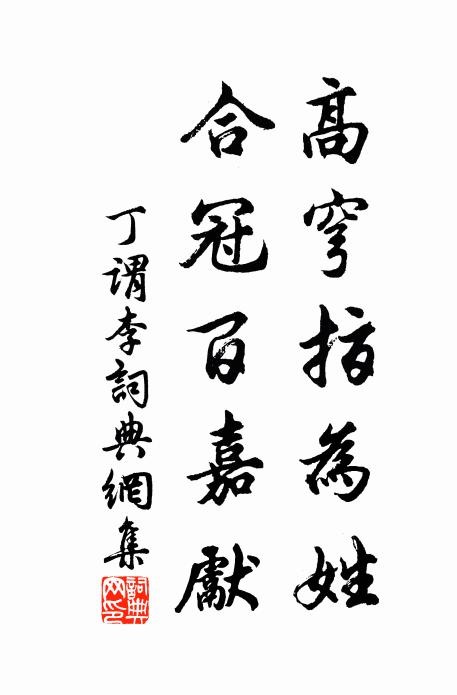 高穹指為姓
合冠百嘉獻
丁謂李詞典網集
詞典網印